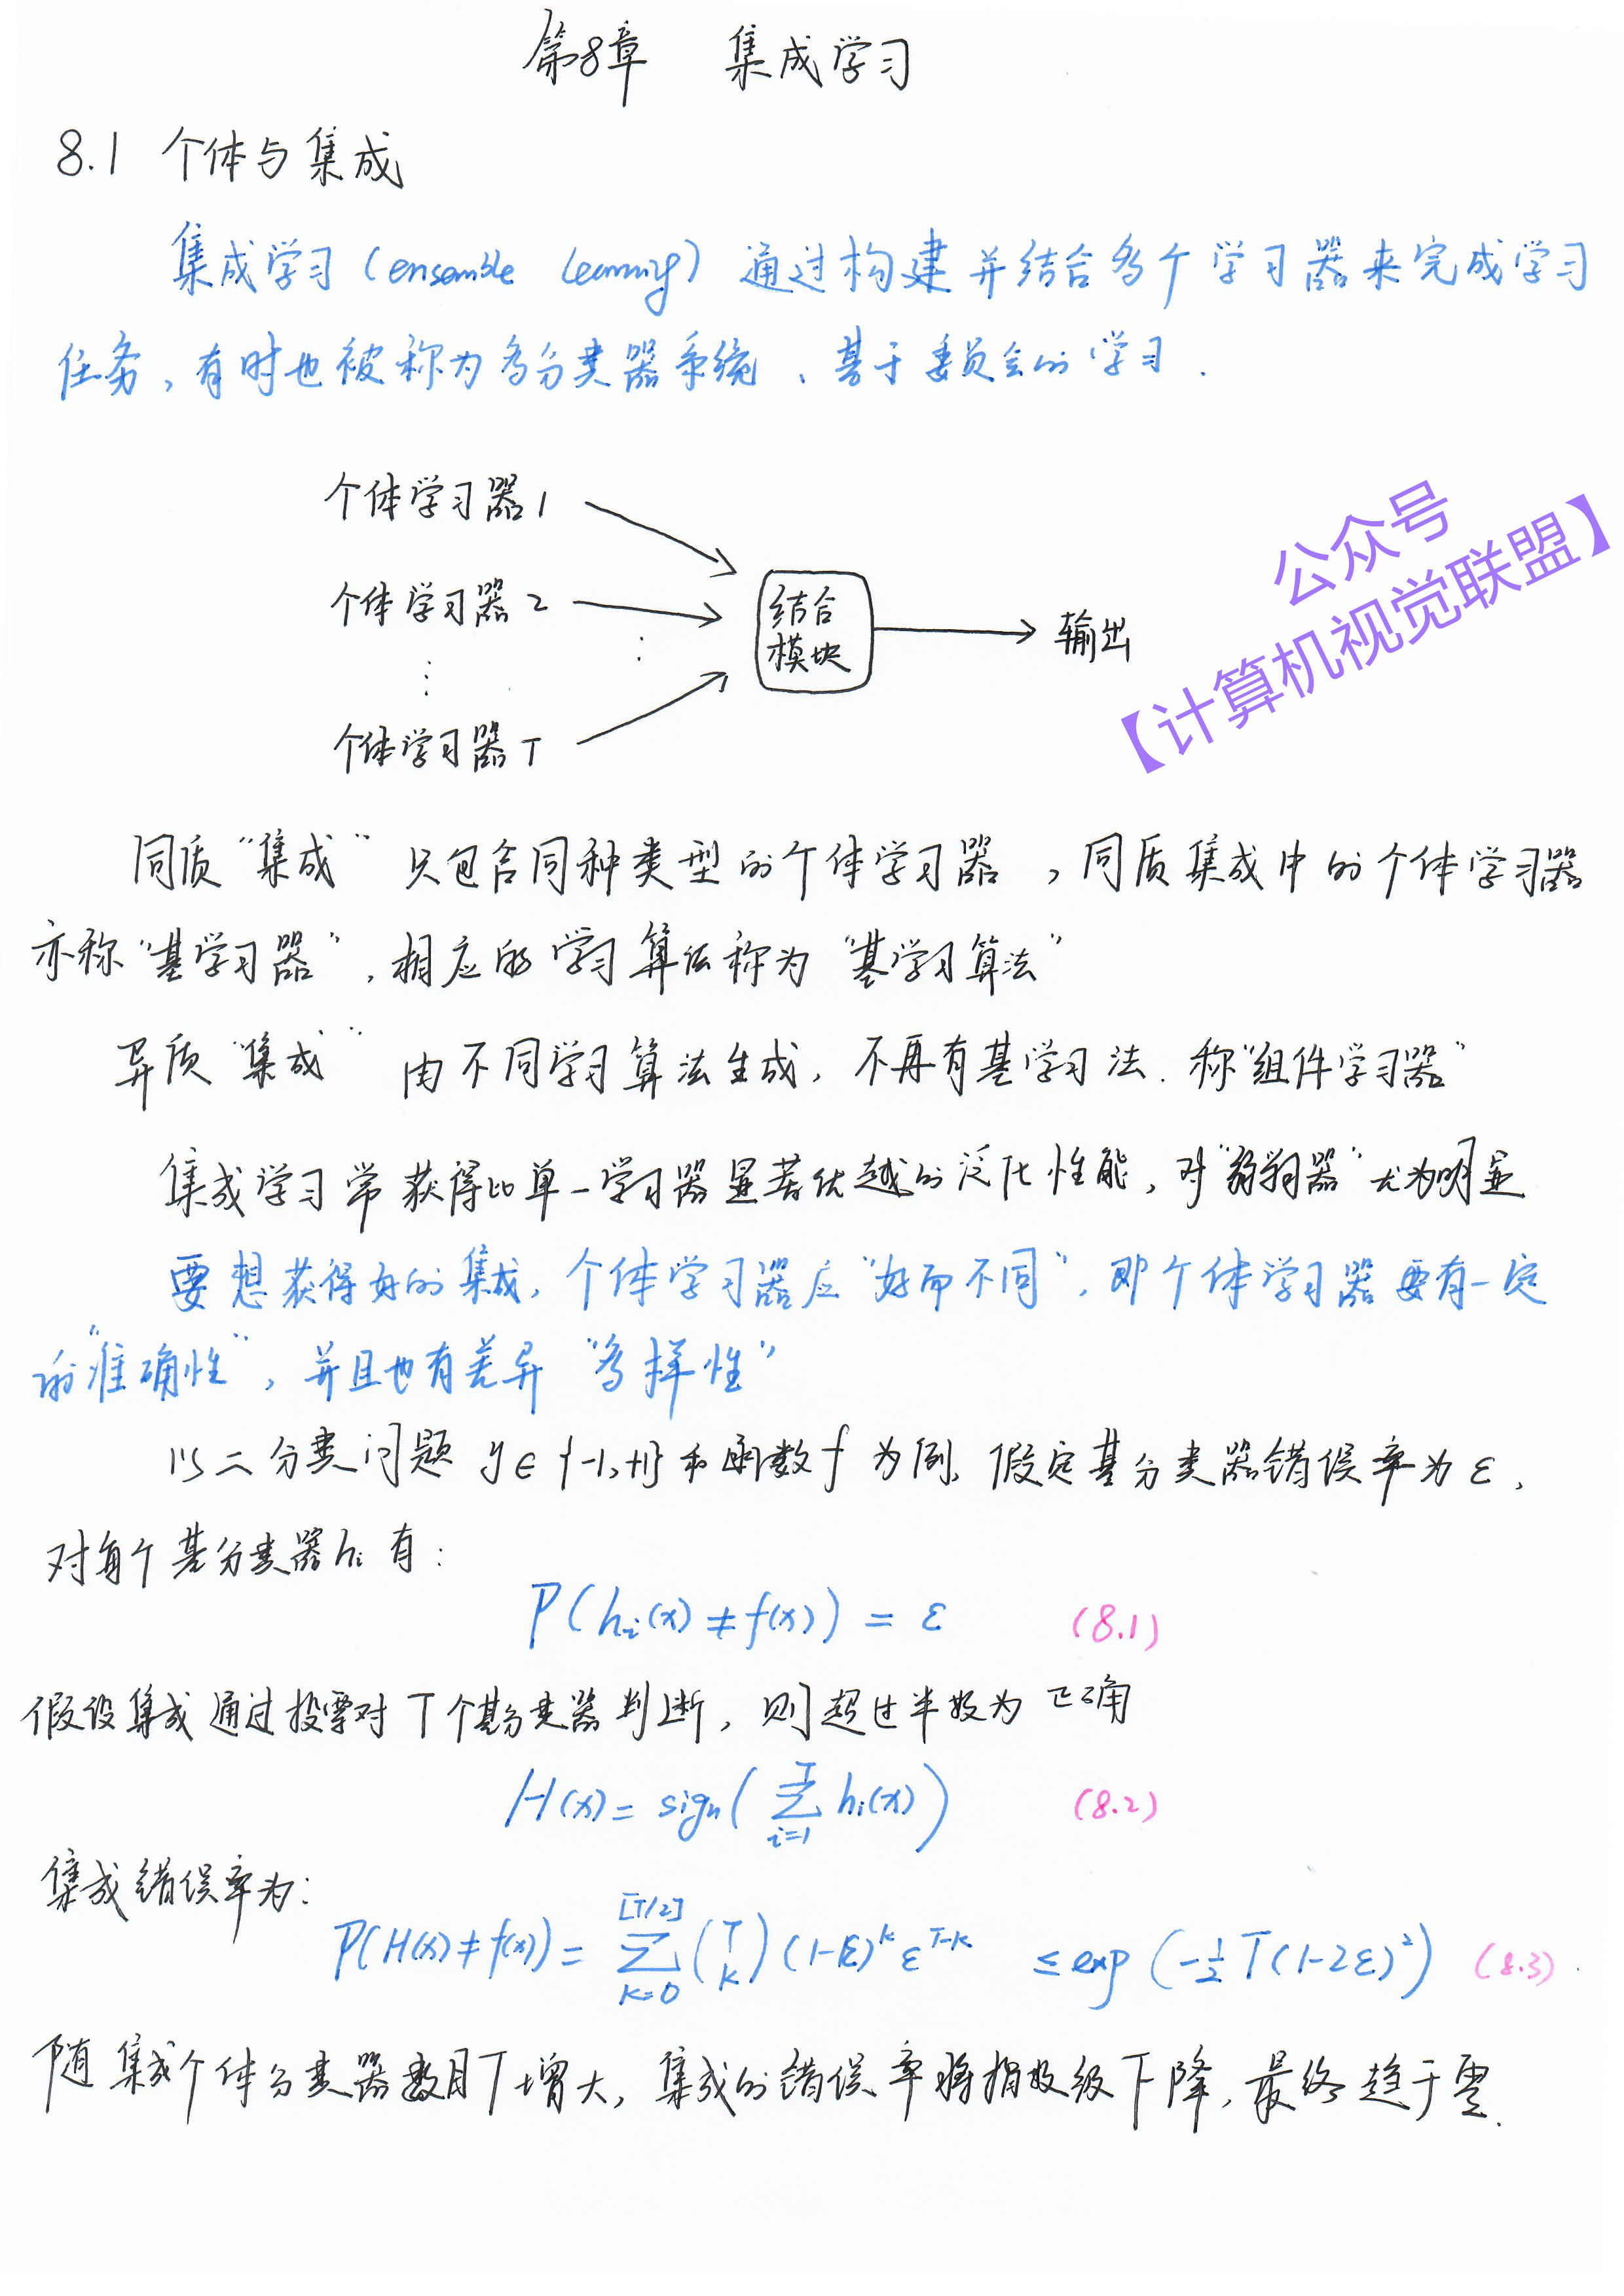 第8章 集成学习
8.1 个体与集成
集成学习(ensemble learning) 通过构建并结合多个学习器来完成学习
任务,有时也被称为多分类器系统、基于委员会的学习.
个体学习器1
个体学习器2
结合
模块
输出
⋮
⋮
个体学习器T
公众号
【计算机视觉联盟】
同质“集成” 只包含同种类型的个体学习器,同质集成中的个体学习器
亦称“基学习器”,相应的学习算法称为“基学习算法”
异质“集成” 由不同学习算法生成,不再有基学习法.称“组件学习器”
集成学习常获得比单一学习器显著优越的泛化性能,对“弱学习器”尤为明显
要想获得好的集成,个体学习器应“好而不同”,即个体学习器要有一定
的“准确性”,并且也有差异“多样性”
以二分类问题 y∈{-1,+1} 和函数f 为例,假定基分类器错误率为ε,
对每个基分类器hi有:
P(hi(x)≠f(x)) = ε (8.1)
假设集成通过投票对T个基分类器判断,则超过半数为正确
H(x) = sign(∑_{i=1}^{T} hi(x)) (8.2)
集成错误率为:
P(H(x)≠f(x)) = ∑_{k=0}^{[T/2]} (T k) (1-ε)^k ε^{T-k} ≤ exp(-½T(1-2ε)²) (8.3)
随集成个体分类器数目T增大,集成的错误率将指数级下降,最终趋于零.